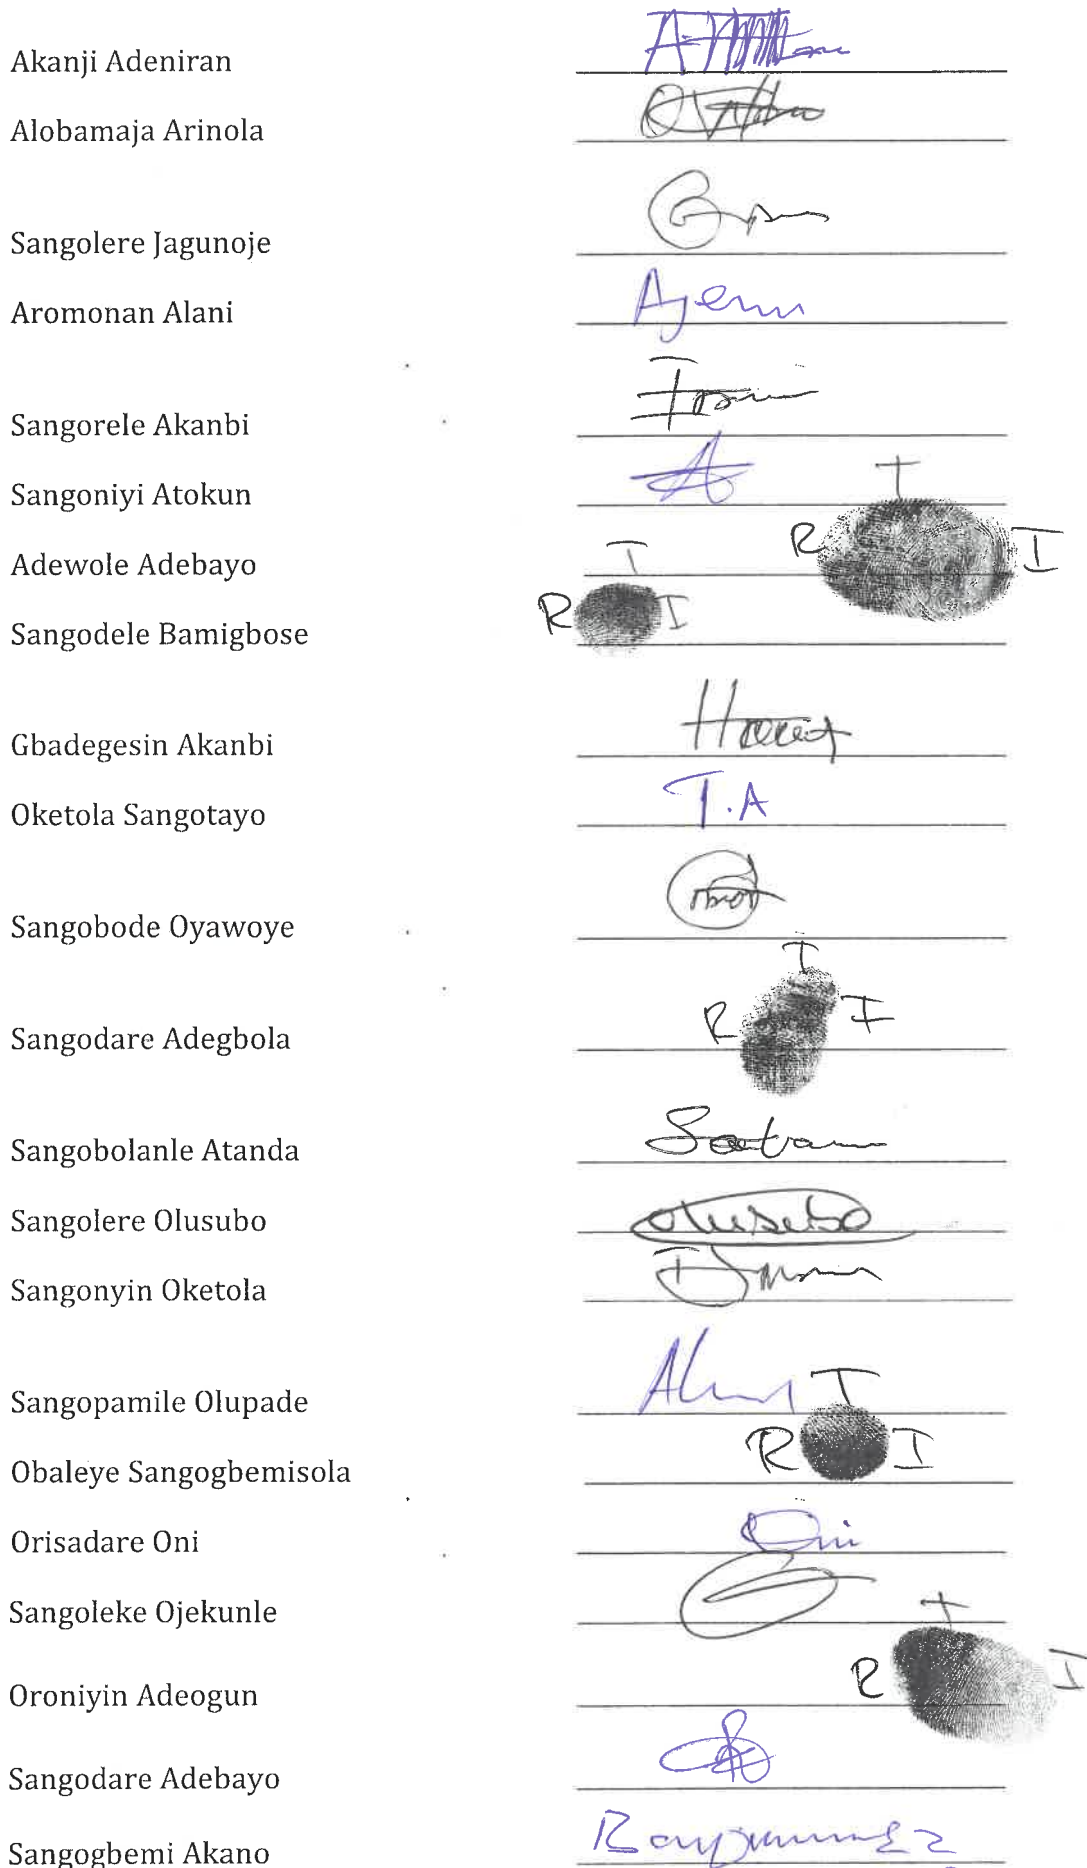 Akanji Adeniran
Alobamaja Arinola
Sangolere Jagunoje
Aromonan Alani
Sangorele Akanbi
Sangoniyi Atokun
T
Adewole Adebayo R I
T
R I
Sangodele Bamigbose
Gbadegesin Akanbi
Oketola Sangotayo T.A
Sangobode Oyawoye
T
R I
Sangodare Adegbola
Sangobolanle Atanda
Sangolere Olusubo Olusubo
Sangonyin Oketola
Sangopamile Olupade
T
R I
Obaleye Sangogbemisola
Orisadare Oni Oni
Sangoleke Ojekunle
T
R I
Oroniyin Adeogun
Sangodare Adebayo
Sangogbemi Akano